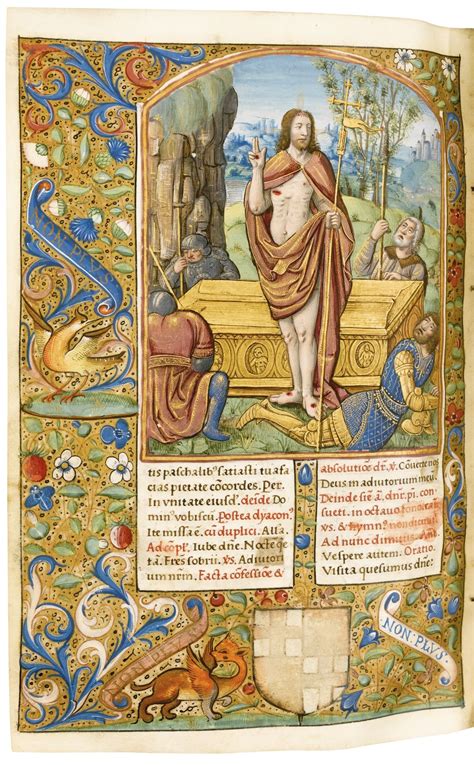 NON PLVS
tis paschalib9 satiasti tua fa
cias pietate cōcordes. Per.
In vnitate eiusd'. deīde Do
min9 vobiscū. Postea dyacon9
Ite missa ē. cū duplici. Alla.
Ad cōpl'. Iube dn̄e. Nocte q̄e
tā. Fres sobrii. Vs. Adiutori
um nr̄m. Facta cōfessiōe &
absolutiōe dr̄. V. Cōuerte nos
Deus in adiutorium meū.
Deinde sine ā. dn̄r. pī.
suetī. in octauo
Vs. & hymn9
Ad nunc dimittis. Añ.
Vespere autem. Oratio.
Visita quesumus dn̄e:
NON PLVS
NON PLVS